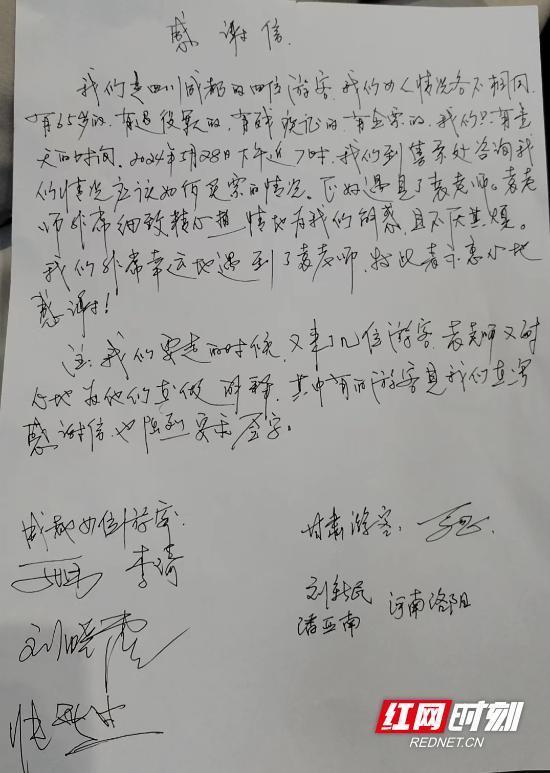 感谢信
我们是四川成都的四位游客,我们四人情况各不相同,
有65岁的,有退役军的,有残疾证的,有全票的,我们只有壹
天的时间。2024年5月28日下午近7时,我们到售票处咨询我
们的情况应该如何买票的情况。正好遇见了袁老师。袁老
师非常细致精心热情地为我们解惑,且不厌其烦。
我们非常幸运地遇到了袁老师,特此表示衷心地
感谢!
注:我们要走的时候,又来了几位游客,袁老师又耐
心地为他们在做解释,其中有的游客见我们在写
感谢信,也强烈要求签字。
成都四位游客:
李琦
刘晓霞
甘肃游客:
刘新民
潘亚南
河南洛阳
红网时刻
REDNET.CN